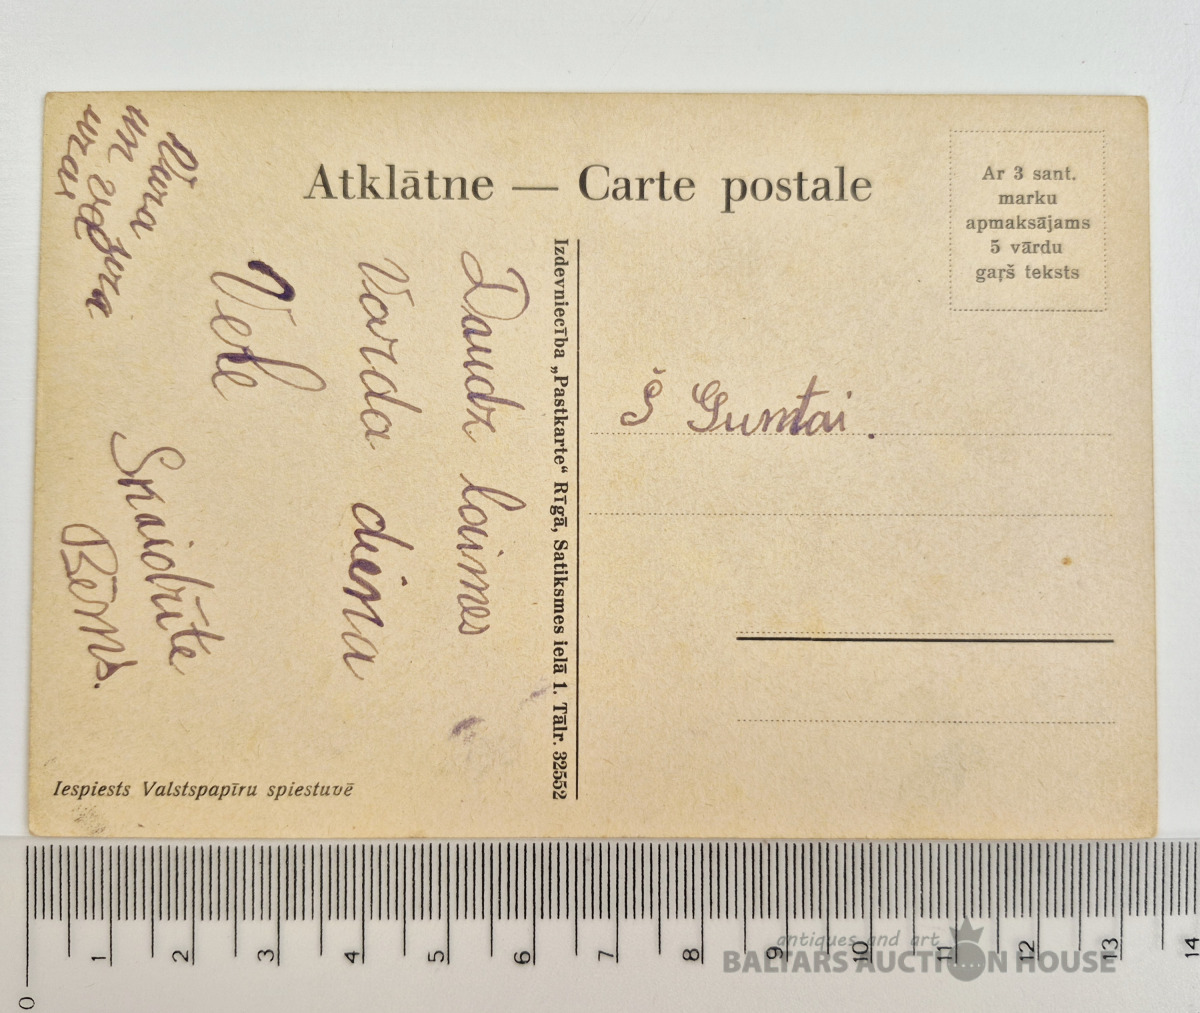 Atklātne — Carte postale
Ar 3 sant.
marku
apmaksājams
5 vārdu
gaŗš teksts
Daudz laimes
Varda diena
Vēle
Skaidrīte
Bērns.
Izdevniecība „Pastkarte“ Rīgā, Satiksmes ielā 1. Tālr. 32552
Š Guntai.
Iespiests Valstspapīru spiestuvē
0 1 2 3 4 5 6 7 8 9 10 11 12 13 14
antiques and art
BALTARS AUCTION HOUSE